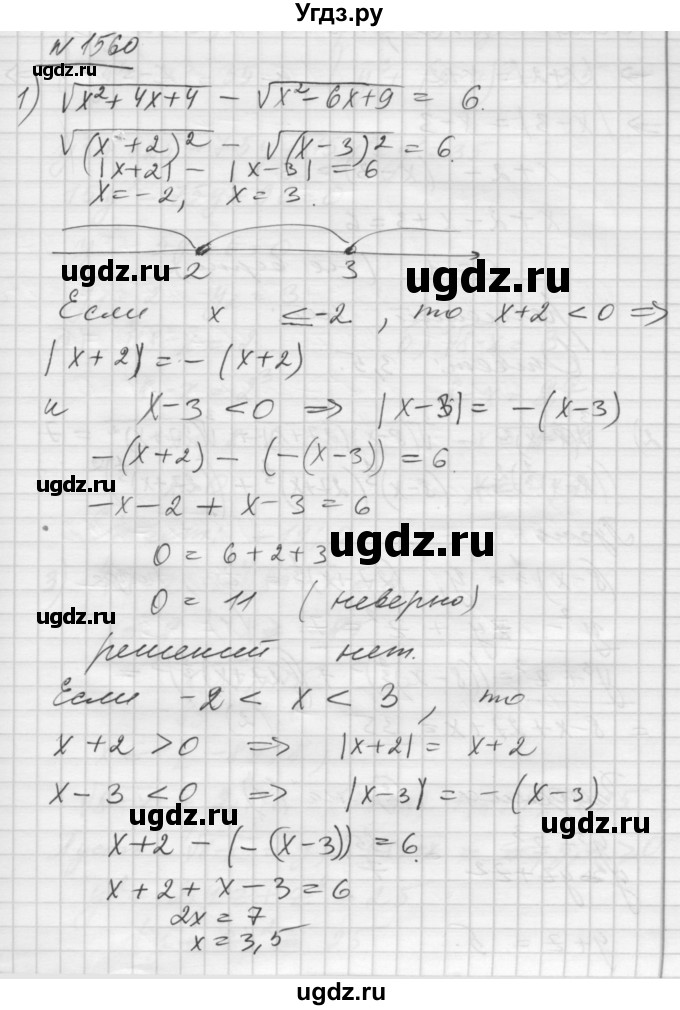 Угдз.ру
N 1560
ugdz.ru
1) √(x²+4x+4) - √(x²-6x+9) = 6.
√((x+2)²) - √((x-3)²) = 6.
|x+2| - |x-3| = 6
x = -2, x = 3.
-2 3
ugdz.ru ugdz.ru
Если x ≤ -2, то x+2 < 0 ⇒
|x+2| = -(x+2)
и x-3 < 0 ⇒ |x-3| = -(x-3)
-(x+2) - (-(x-3)) = 6.
ugdz.ru
-x-2+x-3 = 6
0 = 6+2+3
ugdz.ru
0 = 11 (неверно)
ugdz.ru
решений нет.
Если -2 < x < 3, то
x+2 > 0 ⇒ |x+2| = x+2
x-3 < 0 ⇒ |x-3| = -(x-3)
ugdz.ru
x+2 - (-(x-3)) = 6.
x+2+x-3 = 6
2x = 7
x = 3,5
ugdz.ru
ugdz.ru